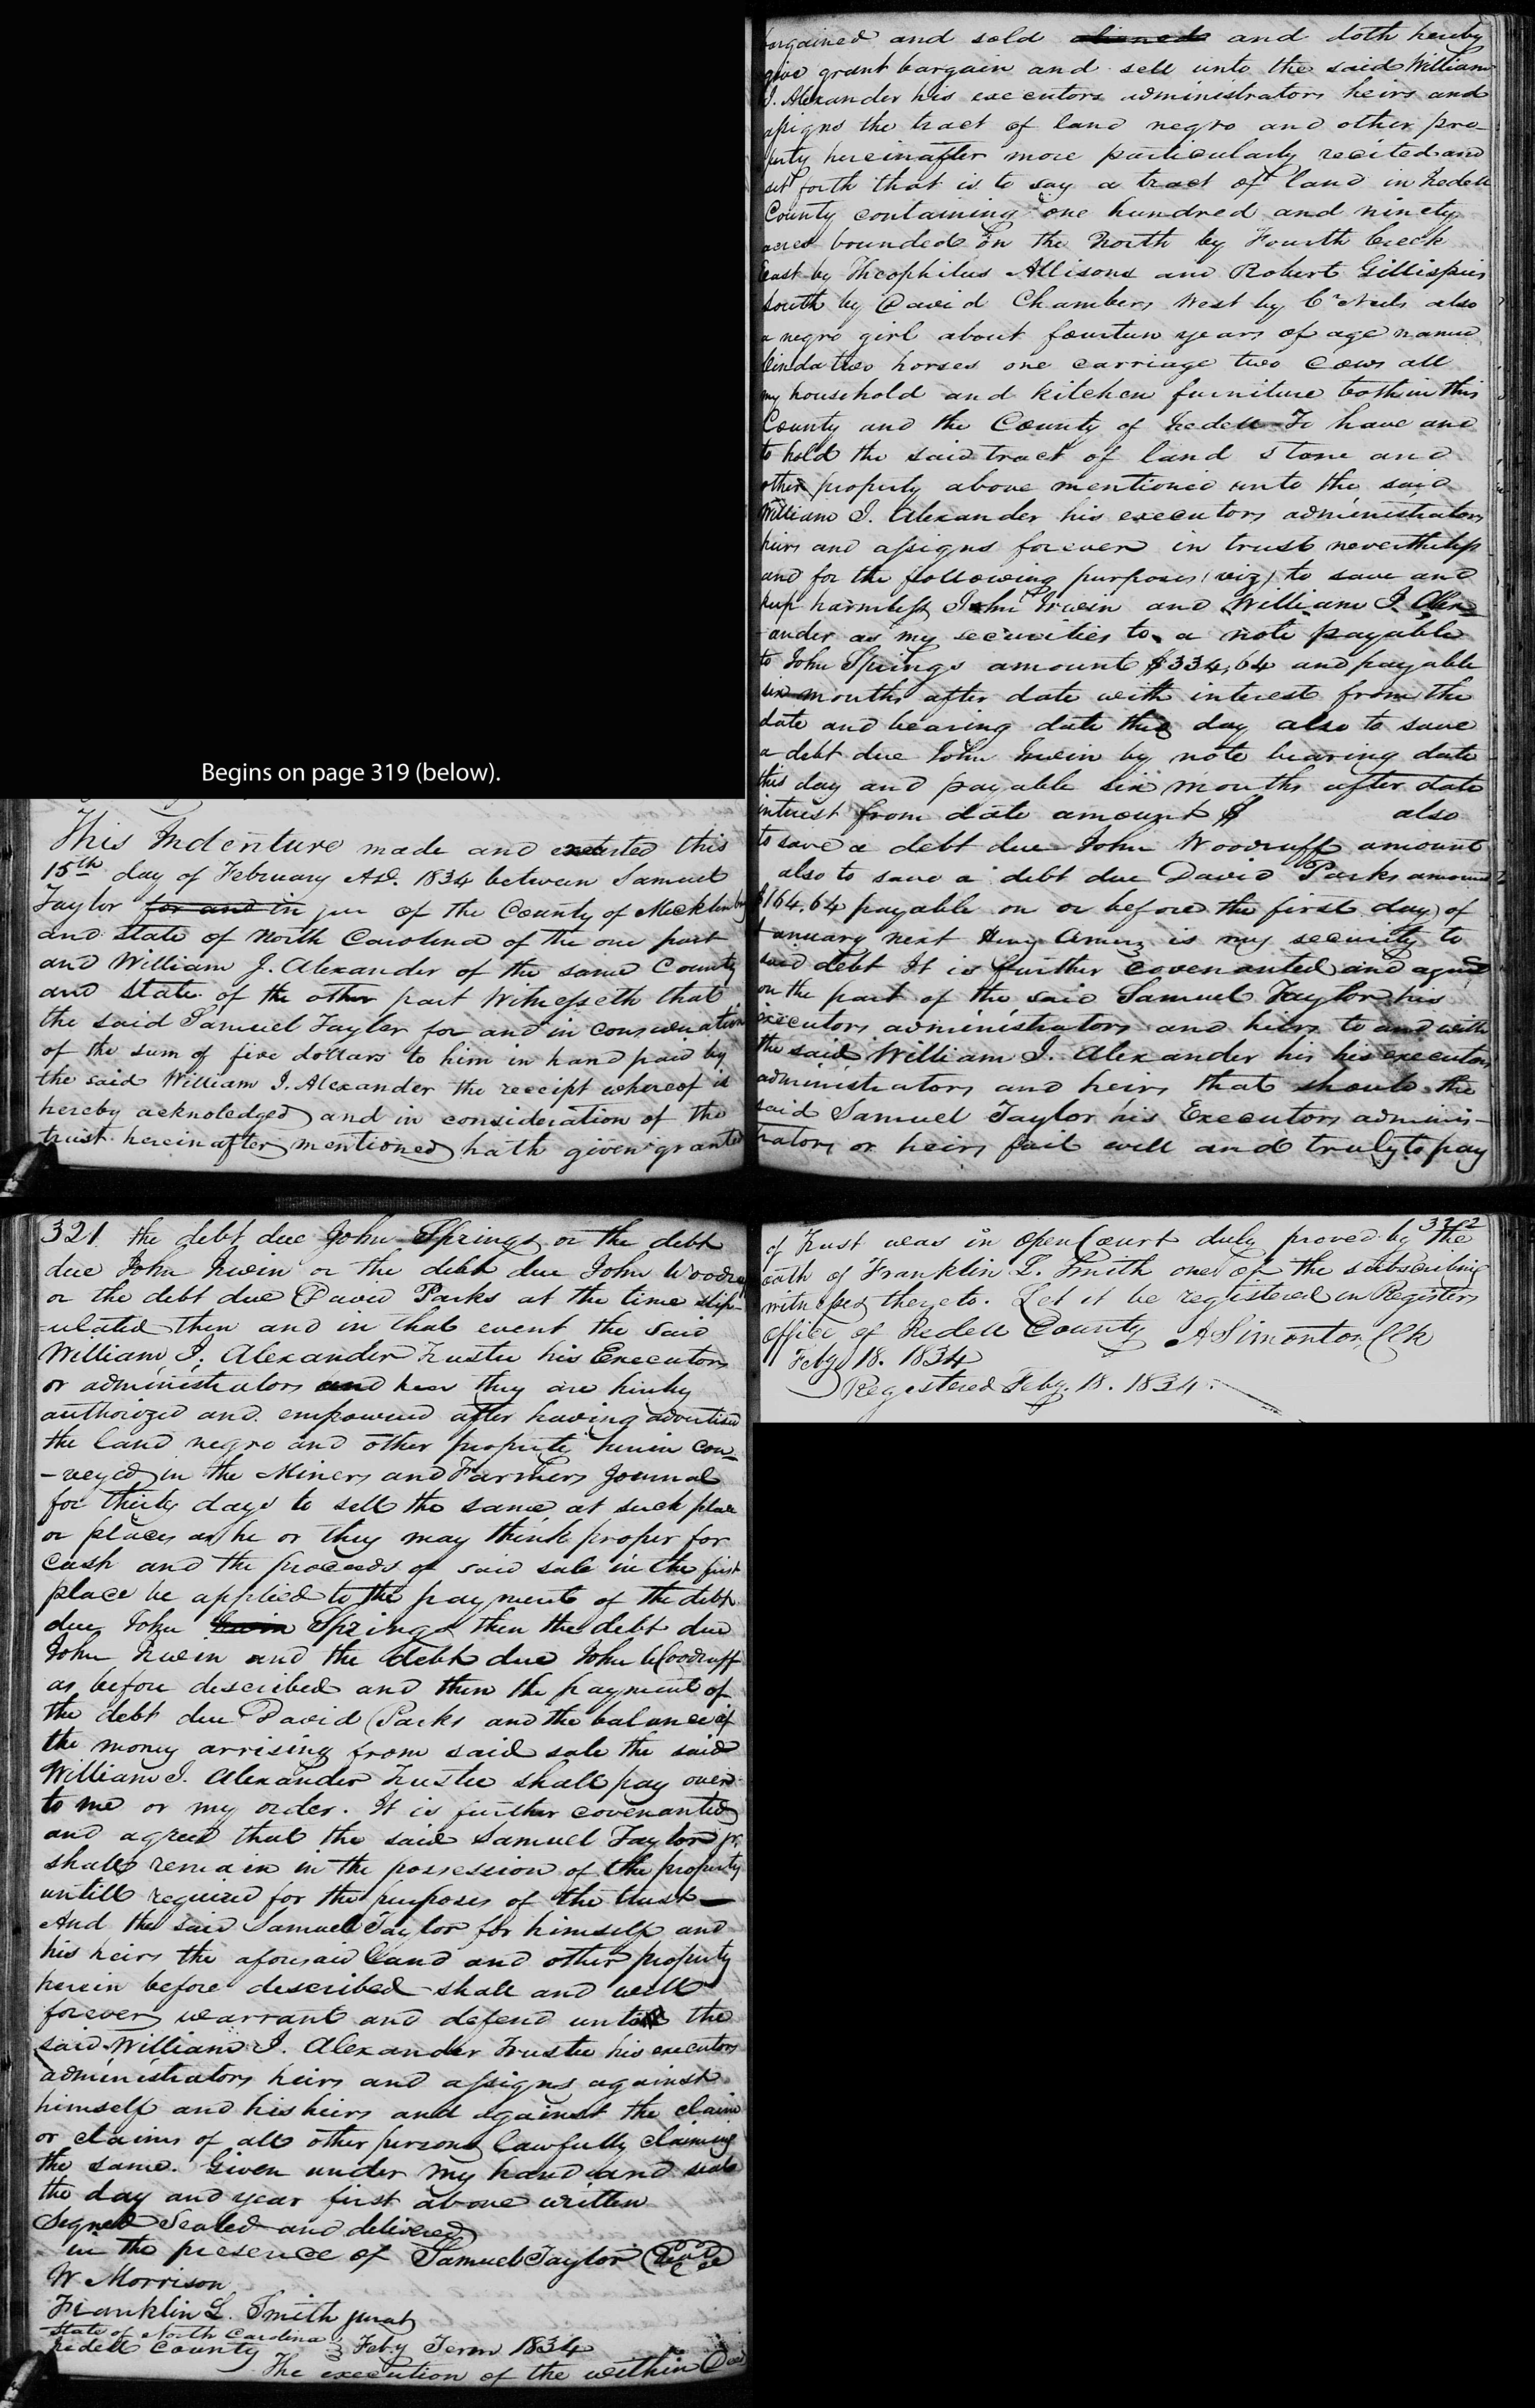 Begins on page 319 (below).
This Indenture made and executed this
15th day of February A.D. 1834 between Samuel
Taylor for and in jur of the County of Mecklinbg
and State of North Carolina of the one part
and William J. Alexander of the same County
and State of the other part Witnesseth that
the said Samuel Taylor for and in consideration
of the sum of five dollars to him in hand paid by
the said William J. Alexander the receipt whereof is
hereby acknoledged and in consideration of the
trust hereinafter mentioned hath given granted
bargained and sold and doth hereby
give grant bargain and sell unto the said William
J. Alexander his executors administrators heirs and
assigns the tract of land negro and other pro-
perty hereinafter more particularly recited and
set forth that is to say a tract of land in Iredell
County containing one hundred and ninety
acres bounded on the North by Fourth Creek
East by Theophilus Allisons and Robert Gillispies
South by David Chambers West by also
a negro girl about fourteen years of age name
Linda two horses one carriage two cows all
my household and kitchen furniture both in this
County and the County of Iredell To have and
to hold the said tract of land and
other property above mentioned unto the said
William J. Alexander his executors administrators
heirs and assigns forever in trust nevertheless
and for the following purposes (viz) to save and
keep harmless John Irwin and William J. Alex-
ander as my securities to a note payable
to John Springs amount $334,64 and payable
six months after date with interest from the
date and bearing date this day also to save
a debt due John Irwin by note bearing date
this day and payable six months after date
interest from date amount $ also
to save a debt due John Woodruff amount
also to save a debt due David Parks amount
$164.64 payable on or before the first day of
January next is my security to
said debt It is further covenanted and agreed
on the part of the said Samuel Taylor his
executors administrators and heirs to and with
the said William J. Alexander his his executors
administrators and heirs that should the
said Samuel Taylor his Executors adminis-
trators or heirs fail well and truly to pay
321 the debt due John Springs or the debt
due John Irwin or the debt due John Woodruff
or the debt due David Parks at the time stip-
-ulated then and in that event the said
William J. Alexander Trustee his Executors
or administrators and they are hereby
authorized and empowered after having advertised
the land negro and other property herein con-
-veyed in the Miners and Farmers Journal
for thirty days to sell the same at such place
or places as he or they may think proper for
cash and the proceeds of said sale in the first
place be applied to the payment of the debt
due John Irwin Springs then the debt due
John Irwin and the debt due John Woodruff
as before described and then the payment of
the debt due David Parks and the balance of
the money arrising from said sale the said
William J. Alexander Trustee shall pay over
to me or my order. It is further covenanted
and agreed that the said Samuel Taylor jr.
shall remain in the possession of the property
untill required for the purposes of the trust —
And the said Samuel Taylor for himself and
his heirs the aforesaid land and other property
herein before described shall and will
forever warrant and defend unto the
said William J. Alexander Trustee his executors
administrators heirs and assigns against
himself and his heirs and against the claim
or claims of all other persons lawfully claiming
the same. Given under my hand and seal
the day and year first above written
Signed Sealed and delivered
in the presence of Samuel Taylor Seal
W Morrison
Franklin L. Smith jurat
State of North Carolina
Iredell County } Feby Term 1834
The execution of the within Deed
322
of Trust was in Open Court duly proved by the
oath of Franklin L. Smith one of the subscribing
witnesses thereto. Let it be registered in Registers
Office of Iredell County A Simonton Clk
Feby 18. 1834
Registered Feby. 18. 1834.